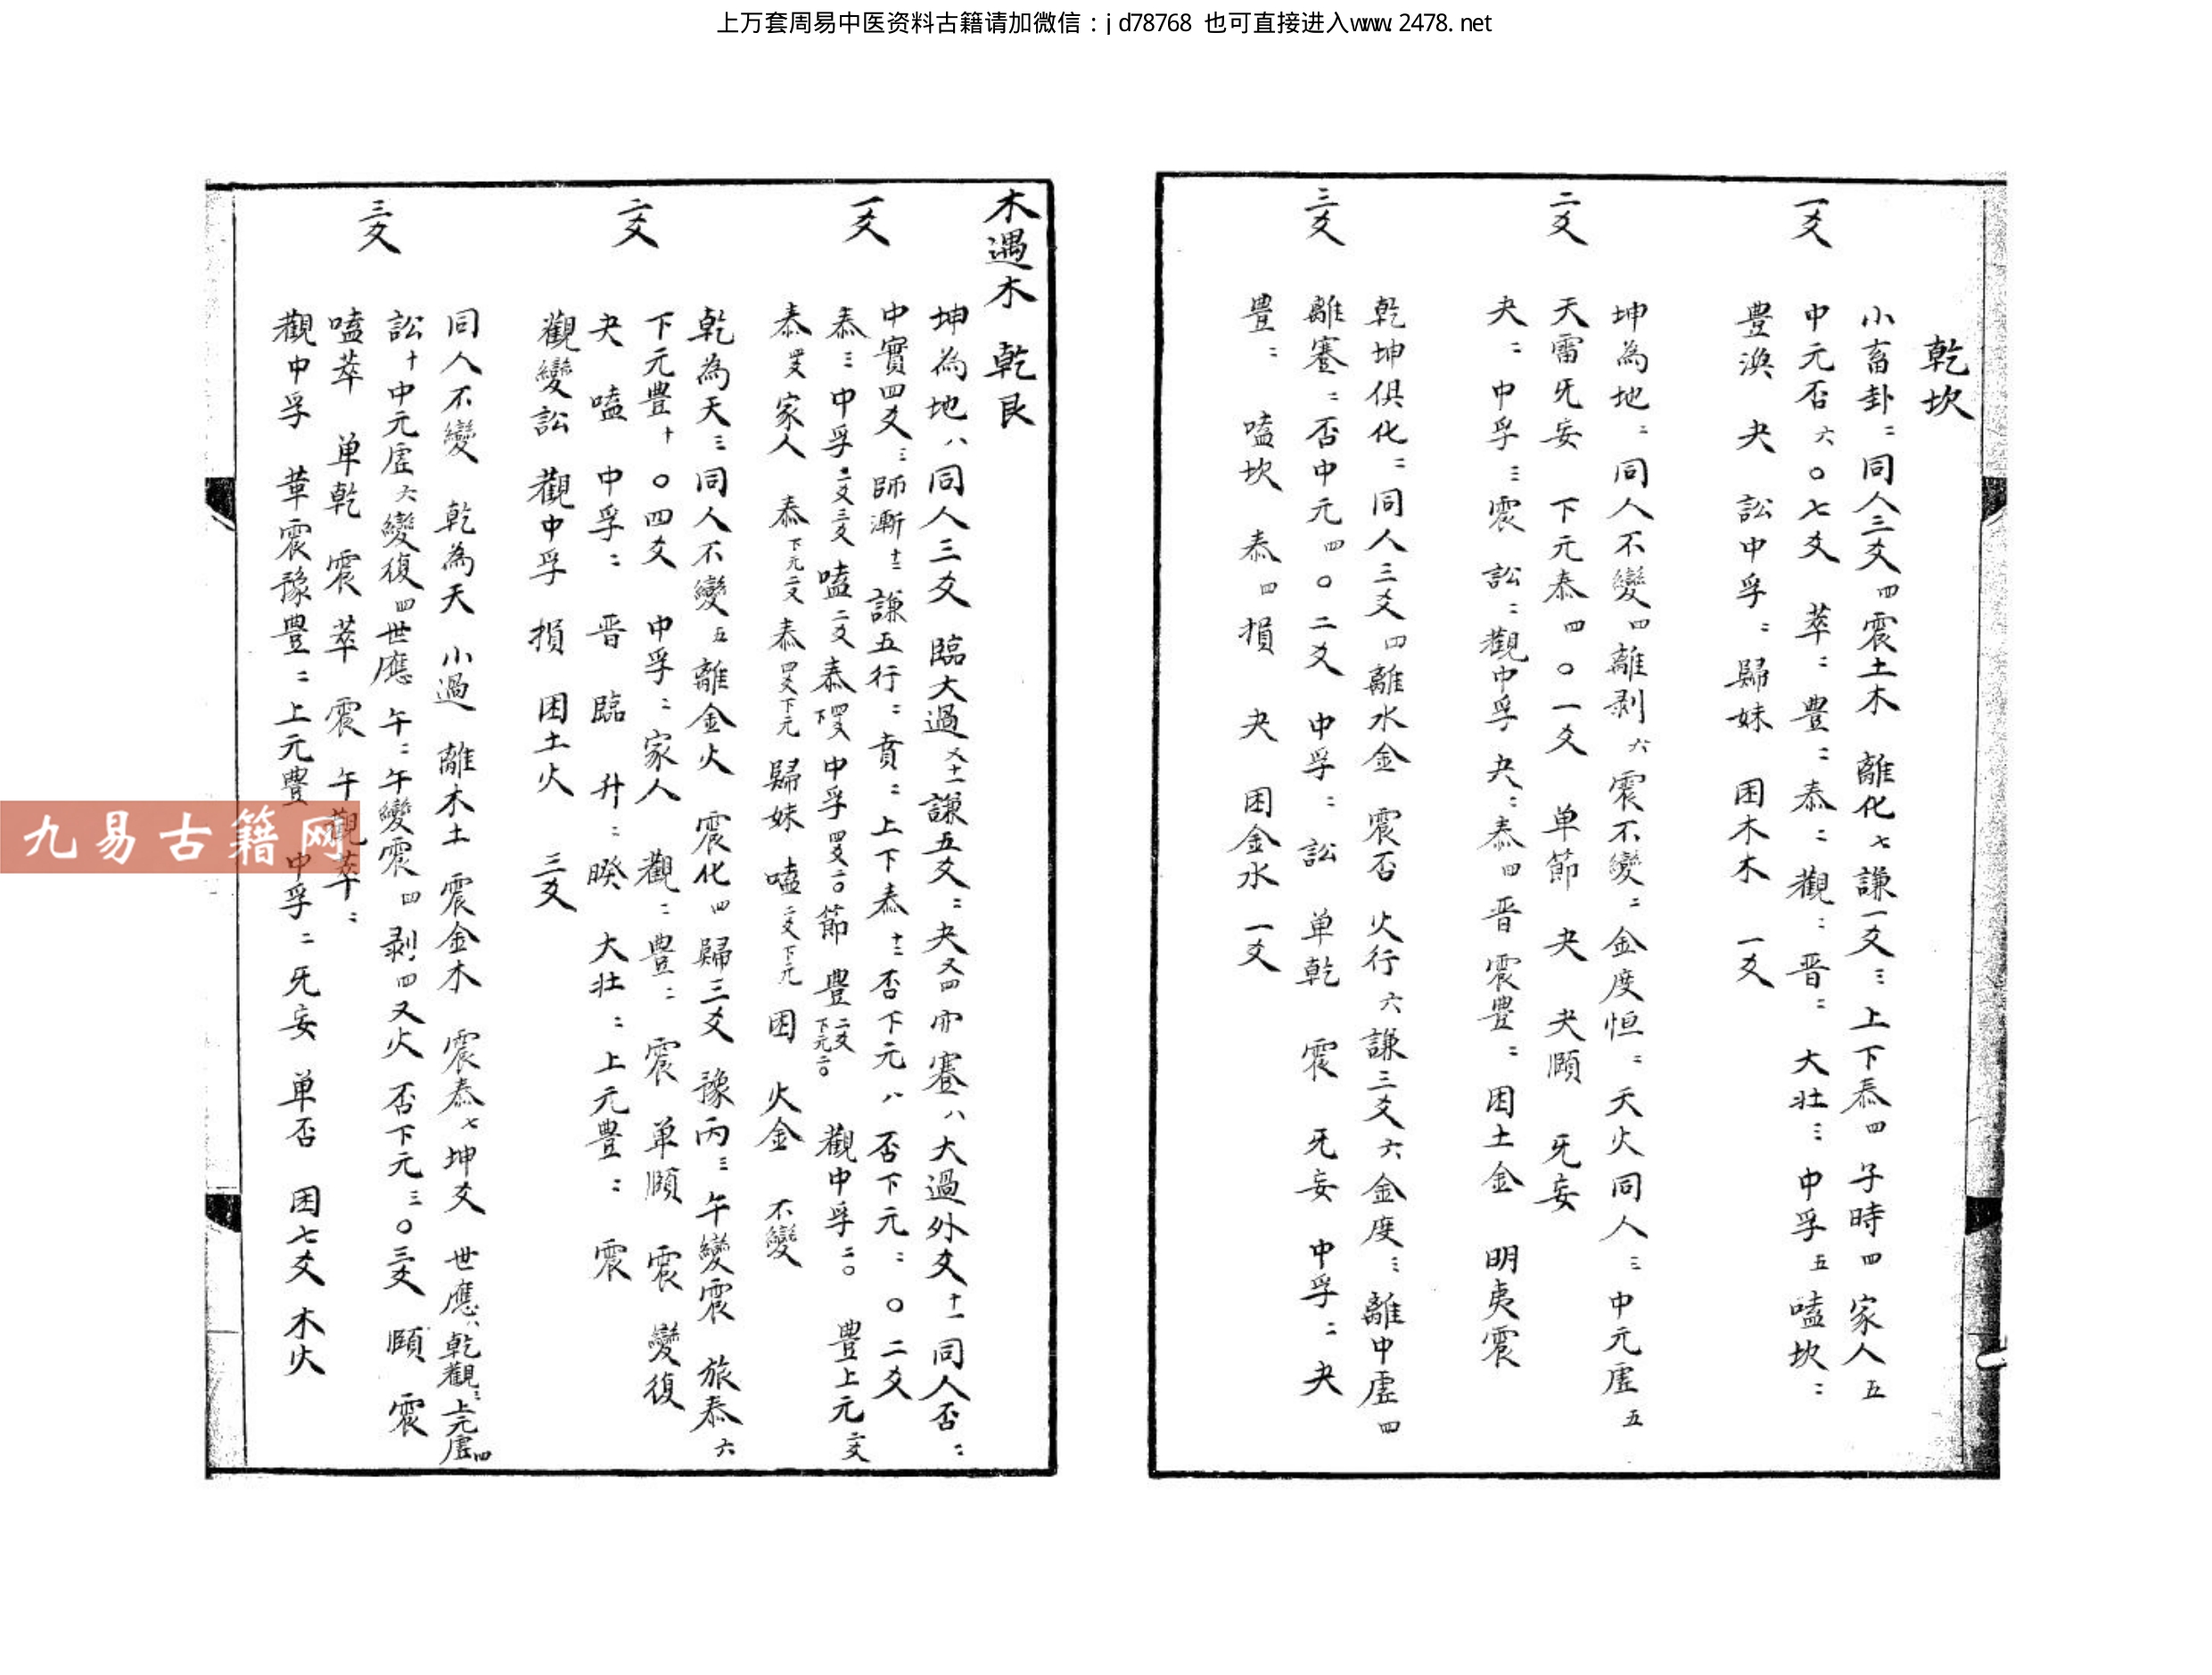 上万套周易中医资料古籍请加微信：jd78768 也可直接进入www.2478.net
乾坎
一爻
小畜卦二同人三爻四震土木 離化七謙一爻三上下泰四 子時四 家人五
中元否六〇七爻 萃二豊二泰二觀二晋二 大壮三 中孚五嗑坎二
豊渙 夬 訟中孚二歸妹 困木木 一爻
二爻
坤為地二同人不變四離剥六震不變二金度恒二天火同人三中元虛五
天雷旡妄 下元泰四〇一爻 单節 夬 夬頤 旡妄
夬二中孚三震 訟二觀中孚 夬二泰四晋震豊二困土金 明夷震
三爻
乾坤俱化二同人三爻四離水金 震否 火行六謙三爻六金度三離中虛四
離蹇二否中元四〇二爻 中孚二訟 单乾 震 旡妄 中孚二夬
豊二 嗑坎 泰四損 夬 困金水 一爻
木遇木 乾艮
一爻
坤為地八同人三爻 臨大過又十一謙五爻二夬又四 蹇八大過外爻十一同人否二
中實四爻三師漸十二謙五行二賁二上下泰十二否下元八否下元二〇二爻
泰三中孚二爻三爻嗑二爻泰四爻下中孚四爻二〇節 豊二爻下元二〇 觀中孚二〇 豊上元二爻
泰四爻 家人 泰下元二爻泰四爻下元 歸妹 嗑二爻下元 困 火金 不變
二爻
乾為天三同人不變五離金火 震化四歸三爻 豫丙三午變震 旅泰六
下元豊十〇四爻 中孚二家人 觀二豊二 震 单頤 震 變復
夬 嗑 中孚二 晋 臨 升二睽 大壮二上元豊二 震
觀變訟 觀中孚 損 困土火 三爻
三爻
同人不變 乾為天 小過 離木土 震金木 震泰七坤爻 世應八乾觀三上元虛四
訟十中元虛六變復四世應 午二午變震四剥四又火 否下元三〇三爻 頤 震
嗑萃 单乾 震 萃 震 午觀萃二
觀中孚 革震豫豊二上元豊 中孚二旡妄 单否 困七爻 木火
九易古籍网